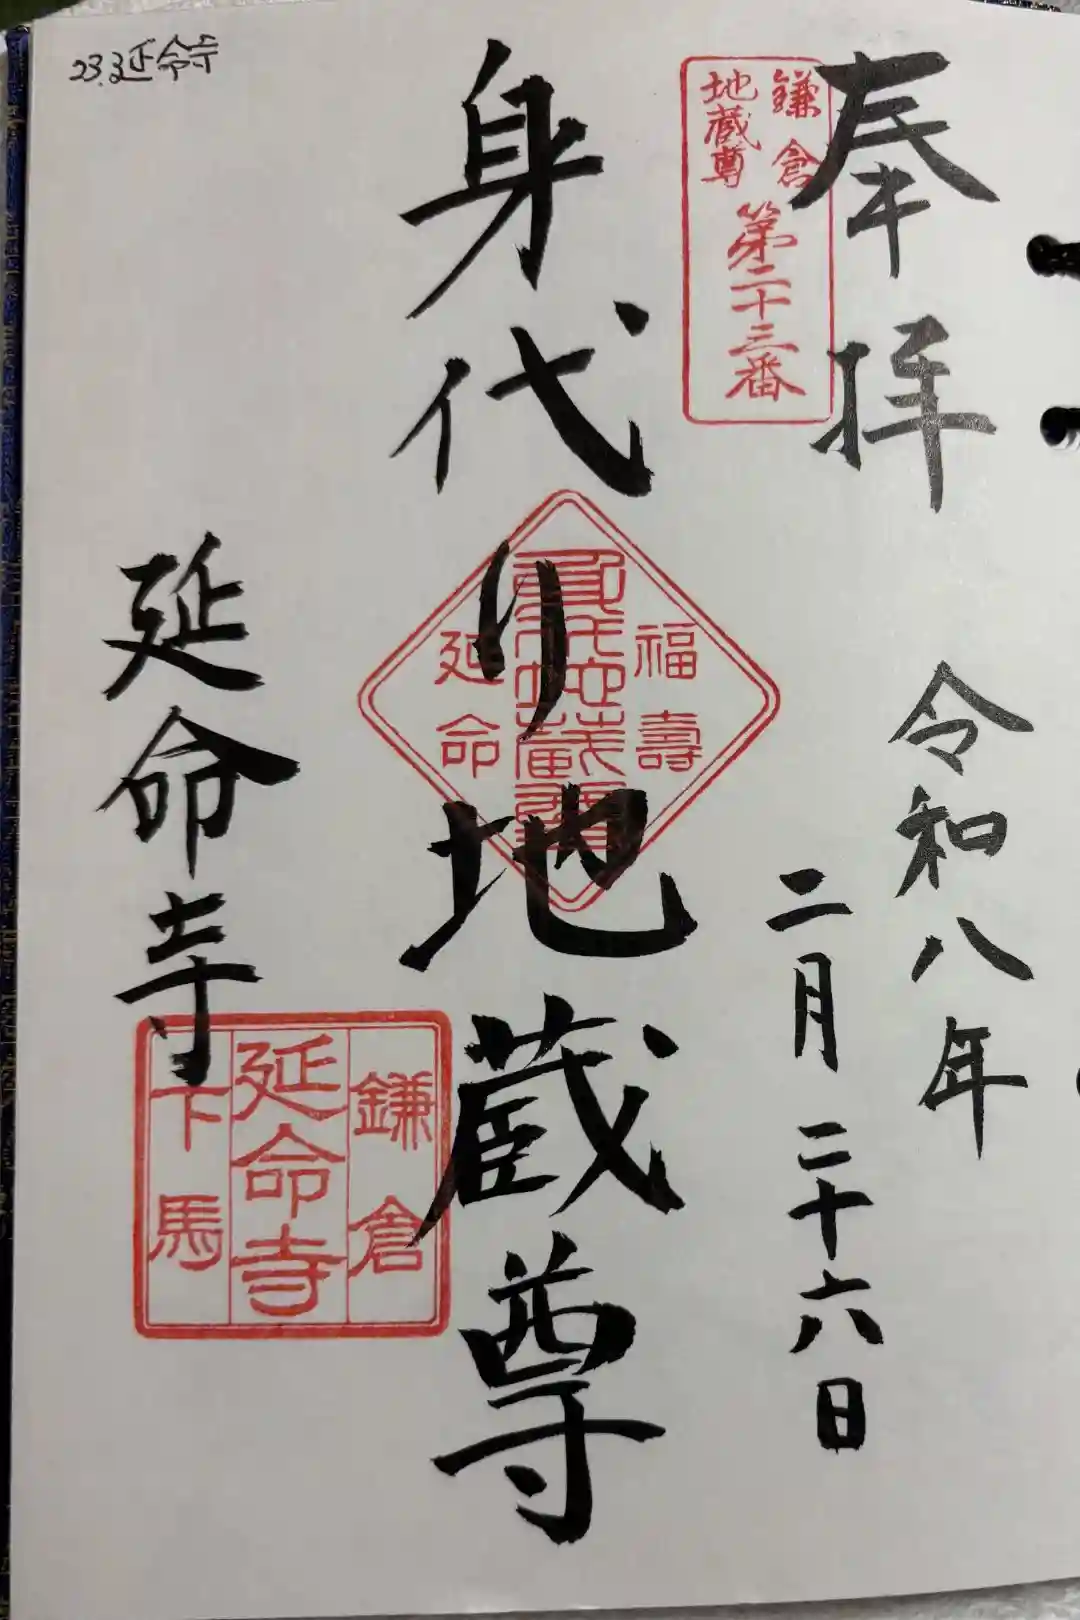 23.延命寺
奉拝
令和八年
二月二十六日
鎌倉
地蔵尊
第二十三番
身代り地蔵尊
福壽
身代地蔵尊
延命
延命寺
鎌倉
延命寺
下馬